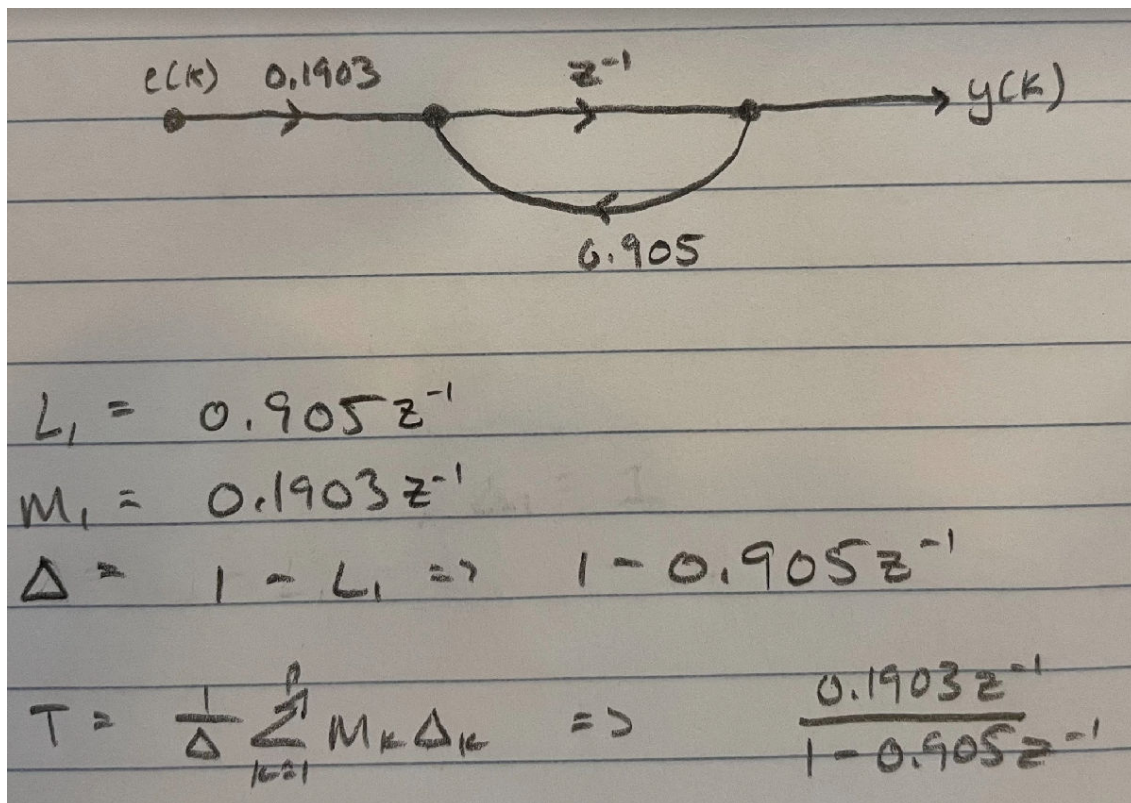 e(k) 0.1903 z⁻¹ y(k)
0.905
L₁ = 0.905z⁻¹
M₁ = 0.1903z⁻¹
Δ = 1 - L₁ => 1 - 0.905z⁻¹
T = 1/Δ Σ k=1 n Mₖ Δₖ => 0.1903z⁻¹ / 1 - 0.905z⁻¹